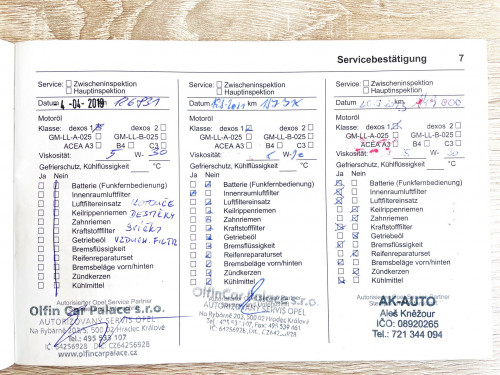 Servicebestätigung 7
Service: Zwischeninspektion
Hauptinspektion
Datum 4 -04- 2019 km
Motoröl
Klasse: dexos 1 dexos 2
GM-LL-A-025 GM-LL-B-025
ACEA A3 B4 C3
Viskosität: 5 W- 30
Gefrierschutz, Kühlflüssigkeit °C
Ja Nein
Batterie (Funkfernbedienung)
Innenraumluftfilter
Luftfiltereinsatz
Keilrippenriemen
Zahnriemen
Kraftstofffilter
Getriebeöl
Bremsflüssigkeit
Reifenreparaturset
Bremsbeläge vorn/hinten
Zündkerzen
Kühlmittel
KOTOUČE
DESTIČKY
SVÍČKY
VZDUCH. FILTR
Autorisierter Opel Service Partner
Olfin Car Palace s.r.o.
AUTORIZOVANÝ SERVIS OPEL
Na Rybárně 203/5, 500 02 Hradec Králové
Tel.: 495 533 107
IČ: 64256928 DIČ: CZ64256928
www.olfincarpalace.cz
Service: Zwischeninspektion
Hauptinspektion
Datum km
Motoröl
Klasse: dexos 1 dexos 2
GM-LL-A-025 GM-LL-B-025
ACEA A3 B4 C3
Viskosität: 5 W-
Gefrierschutz, Kühlflüssigkeit °C
Ja Nein
Batterie (Funkfernbedienung)
Innenraumluftfilter
Luftfiltereinsatz
Keilrippenriemen
Zahnriemen
Kraftstofffilter
Getriebeöl
Bremsflüssigkeit
Reifenreparaturset
Bremsbeläge vorn/hinten
Zündkerzen
Kühlmittel
Olfin Car Palace s.r.o.
AUTORIZOVANÝ SERVIS OPEL
Na Rybárně 203, 500 02 Hradec Králové
Service: Zwischeninspektion
Hauptinspektion
Datum km
Motoröl
Klasse: dexos 1 dexos 2
GM-LL-A-025 GM-LL-B-025
ACEA A3 B4 C3
Viskosität: 5 W- 30
Gefrierschutz, Kühlflüssigkeit °C
Ja Nein
Batterie (Funkfernbedienung)
Innenraumluftfilter
Luftfiltereinsatz
Keilrippenriemen
Zahnriemen
Kraftstofffilter
Getriebeöl
Bremsflüssigkeit
Reifenreparaturset
Bremsbeläge vorn/hinten
Zündkerzen
Kühlmittel
AK-AUTO
Aleš Kněžour
IČO: 08920265
Tel.: 721 344 094